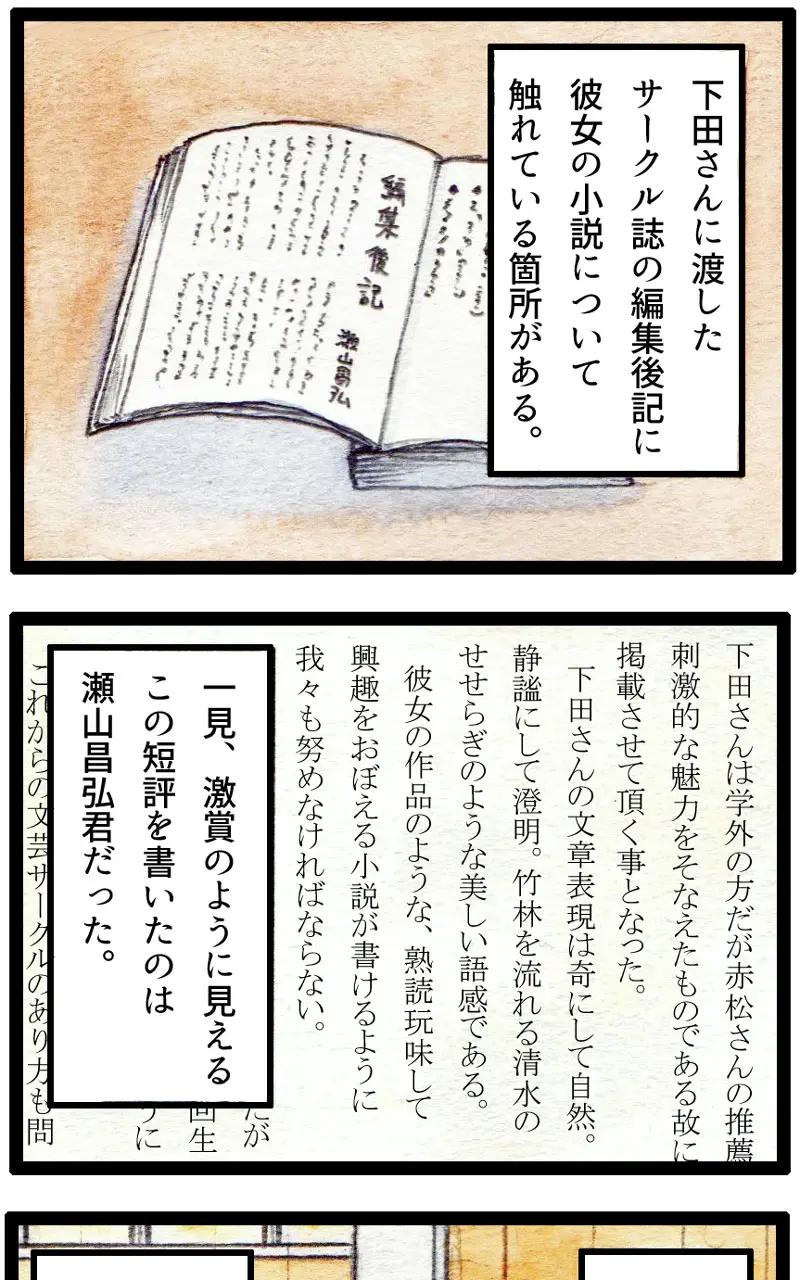 下田さんに渡した
サークル誌の編集後記に
彼女の小説について
触れている箇所がある。
編集後記
瀬山昌弘
下田さんは学外の方だが赤松さんの推薦
刺激的な魅力をそなえたものである故に
掲載させて頂く事となった。
下田さんの文章表現は奇にして自然。
静謐にして澄明。竹林を流れる清水の
せせらぎのような美しい語感である。
彼女の作品のような、熟読玩味して
興趣をおぼえる小説が書けるように
我々も努めなければならない。
一見、激賞のように見える
この短評を書いたのは
瀬山昌弘君だった。
だが
回生
うに
これからの文芸サークルのあり方も問